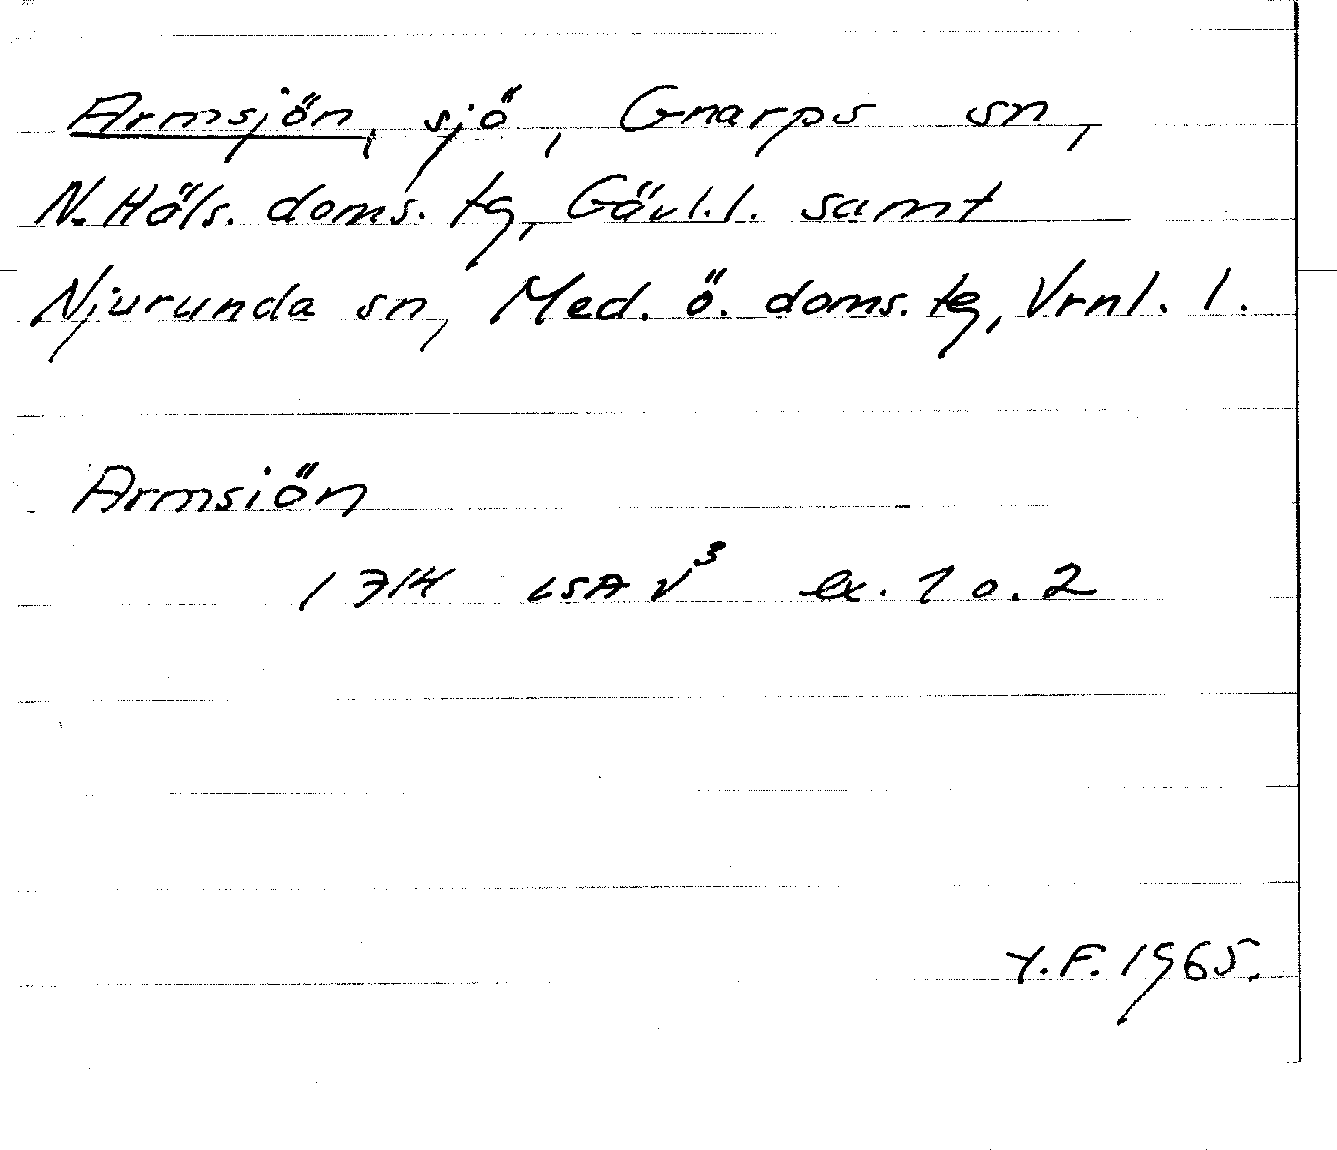 Armsjön, sjö, Gnarps sn,
N. Häls. doms. tg, Gävl. l. samt
Njurunda sn, Med. ö. doms. tg, Vrnl. l.
Armsiön
1714 LSA V³ ex. 1 o. 2
Y.F. 1965.